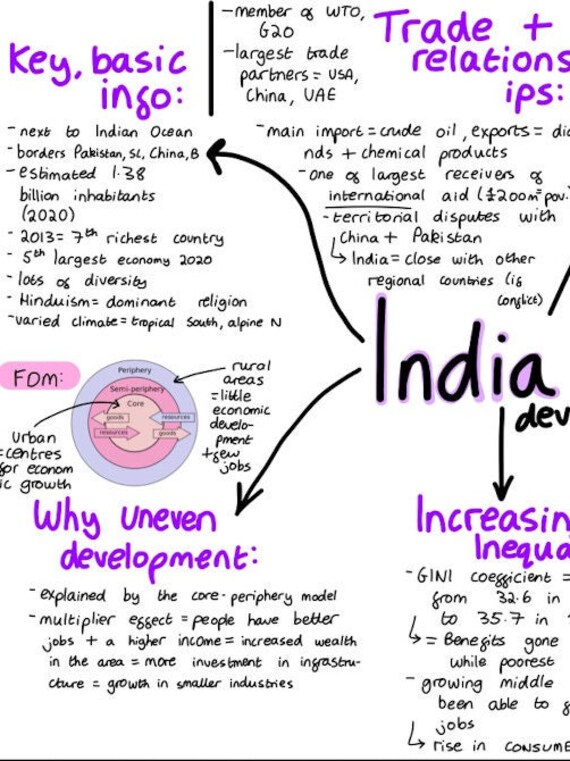 Key, basic
info:
- next to Indian Ocean
- borders Pakistan, SL, China, B
- estimated 1.38
billion inhabitants
(2020)
- 2013 = 7th richest country
- 5th largest economy 2020
- lots of diversity
- Hinduism = dominant religion
- varied climate = tropical South, alpine N
- member of WTO,
G20
- largest trade
partners = USA,
China, UAE
Trade +
relations
ips:
- main import = crude oil, exports = dia
nds + chemical products
- one of largest receivers of
international aid (£200m = pov.
- territorial disputes with
China + Pakistan
↳ India = close with other
regional countries (if
conflict)
India
dev
FDM:
Periphery
Semi-periphery
Core
goods
resources
resources
goods
rural
areas
= little
economic
develo-
pment
+ few
jobs
urban
= centres
for econom
ic growth
Why uneven
development:
- explained by the core-periphery model
- multiplier effect = people have better
jobs + a higher income = increased wealth
in the area = more investment in infrastru-
cture = growth in smaller industries
Increasin
Inequa
- GINI coefficient =
from 32.6 in
to 35.7 in
↳ = Benefits gone
while poorest
- growing middle
been able to
jobs
↳ rise in consume